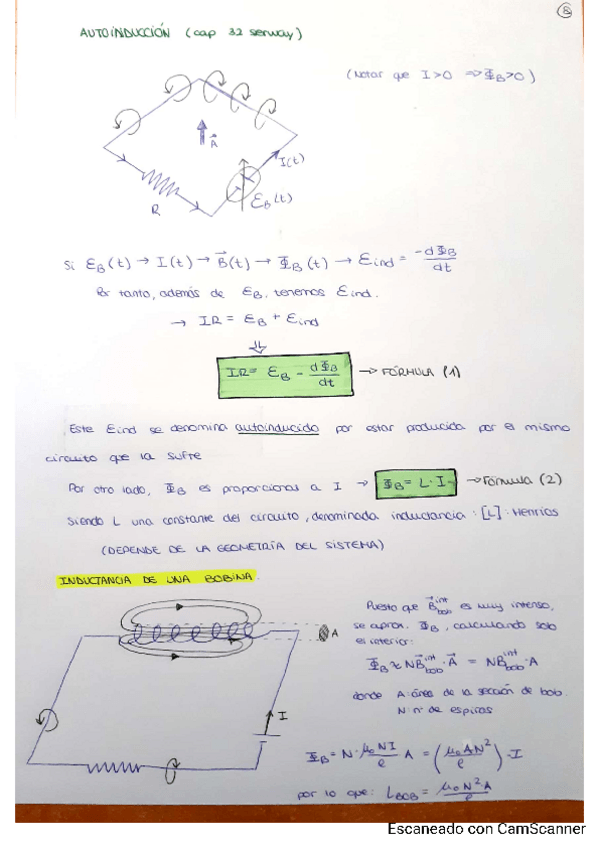 8
AUTOINDUCCIÓN (cap 32 serway)
(Notar que I>0 => ΦB>0)
A⃗
I(t)
R
ƐB(t)
Si ƐB(t) → I(t) → B⃗(t) → ΦB(t) → Ɛind = -dΦB/dt
Por tanto, además de ƐB, tenemos Ɛind.
→ IR = ƐB + Ɛind
⇓
IR = ƐB - dΦB/dt → FÓRMULA (1)
Este Eind se denomina autoinducido por estar producida por el mismo
circuito que la sufre
Por otro lado, ΦB es proporcional a I → ΦB = L·I → Fórmula (2)
Siendo L una constante del circuito, denominada inductancia: [L]: Henrios
(DEPENDE DE LA GEOMETRÍA DEL SISTEMA)
INDUCTANCIA DE UNA BOBINA.
A
I
Puesto que B⃗bob^int es muy intenso,
se aprox. ΦB, calculando solo
el interior:
ΦB ≈ NB⃗bob^int · A⃗ = NBbob^int · A
donde A: área de la sección de bob.
N: nº de espiras
ΦB = N · μ0NI/l A = (μ0AN²/l) · I
por lo que: LBOB = μ0N²A/l
Escaneado con CamScanner